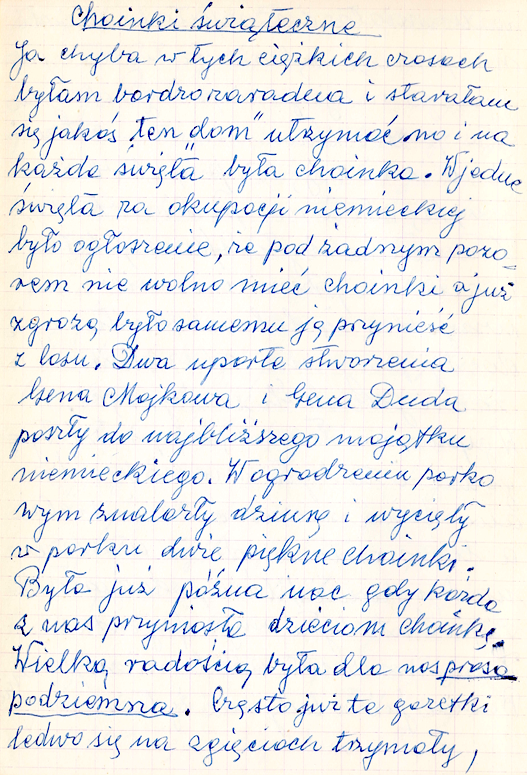 Choinki świąteczne
Ja chyba w tych ciężkich czasach
byłam bardzo zaradna i starałam
się jakoś "ten dom" utrzymać no i na
każde święta była choinka. W jedne
święta za okupacji niemieckiej
było ogłoszenie, że pod żadnym pozo-
rem nie wolno mieć choinki a już
zgrozą było samemu ją przynieść
z lasu. Dwa uparte stworzenia
Gena Majkowa i Gena Duda
poszły do najbliższego majątku
niemieckiego. W ogrodzeniu parko
wym znalazły dziurę i wycięły
w parku dwie piękne choinki.
Była już późna noc gdy każda
z nas przyniosła dzieciom choinkę.
Wielką radością była dla nas prasa
podziemna. Często już te gazetki
ledwo się na zgięciach trzymały,